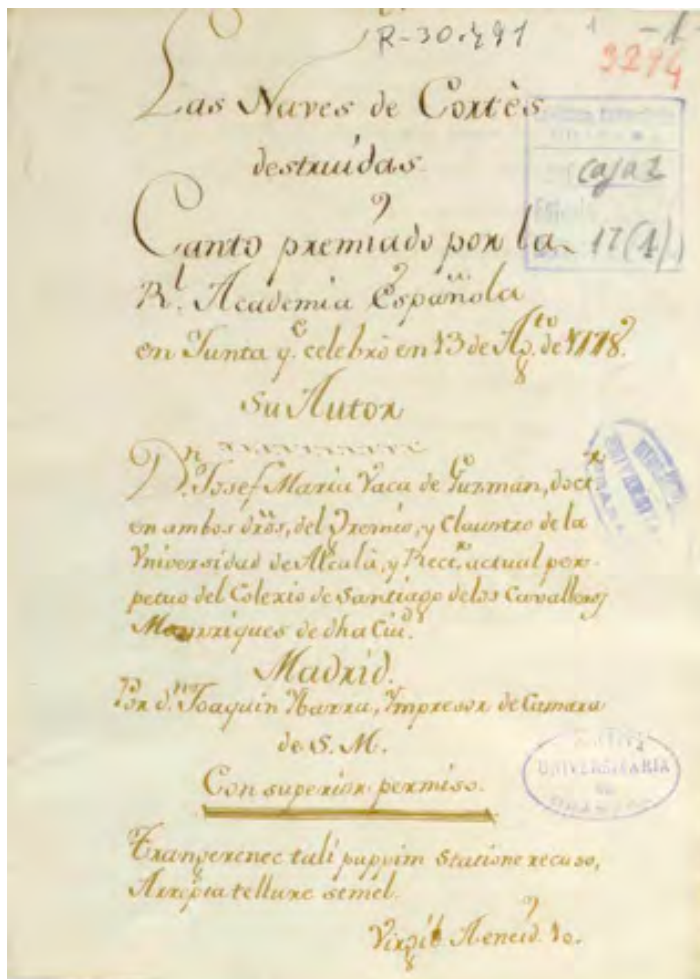 R-30.491
1
-1-
3274
Las Naves de Cortès
destruídas.
Caja 2
Canto premiado por la
17(1)
Rl. Academia Española
en Junta q.e celebrò en 13 de Ag.to de 1778.
Su Autor
D.n Josef Maria Vaca de Guzmán, doct.r
en ambos dros, del Gremio, y Claustro de la
Vniversidad de Alcalá, y Rect.r actual per-
petuo del Colexio de Santiago delos Cavalleros
Manrriques de dha Ciu.d
Madrid.
Por d.n Joaquin Ybarra, Ympresor de Camara
de S. M.
Con superior permiso.
UNIVERSITARIA
Frangere nec tali puppim statione recuso,
Arrepta tellure semel.
Virgil. Aeneid. 10.